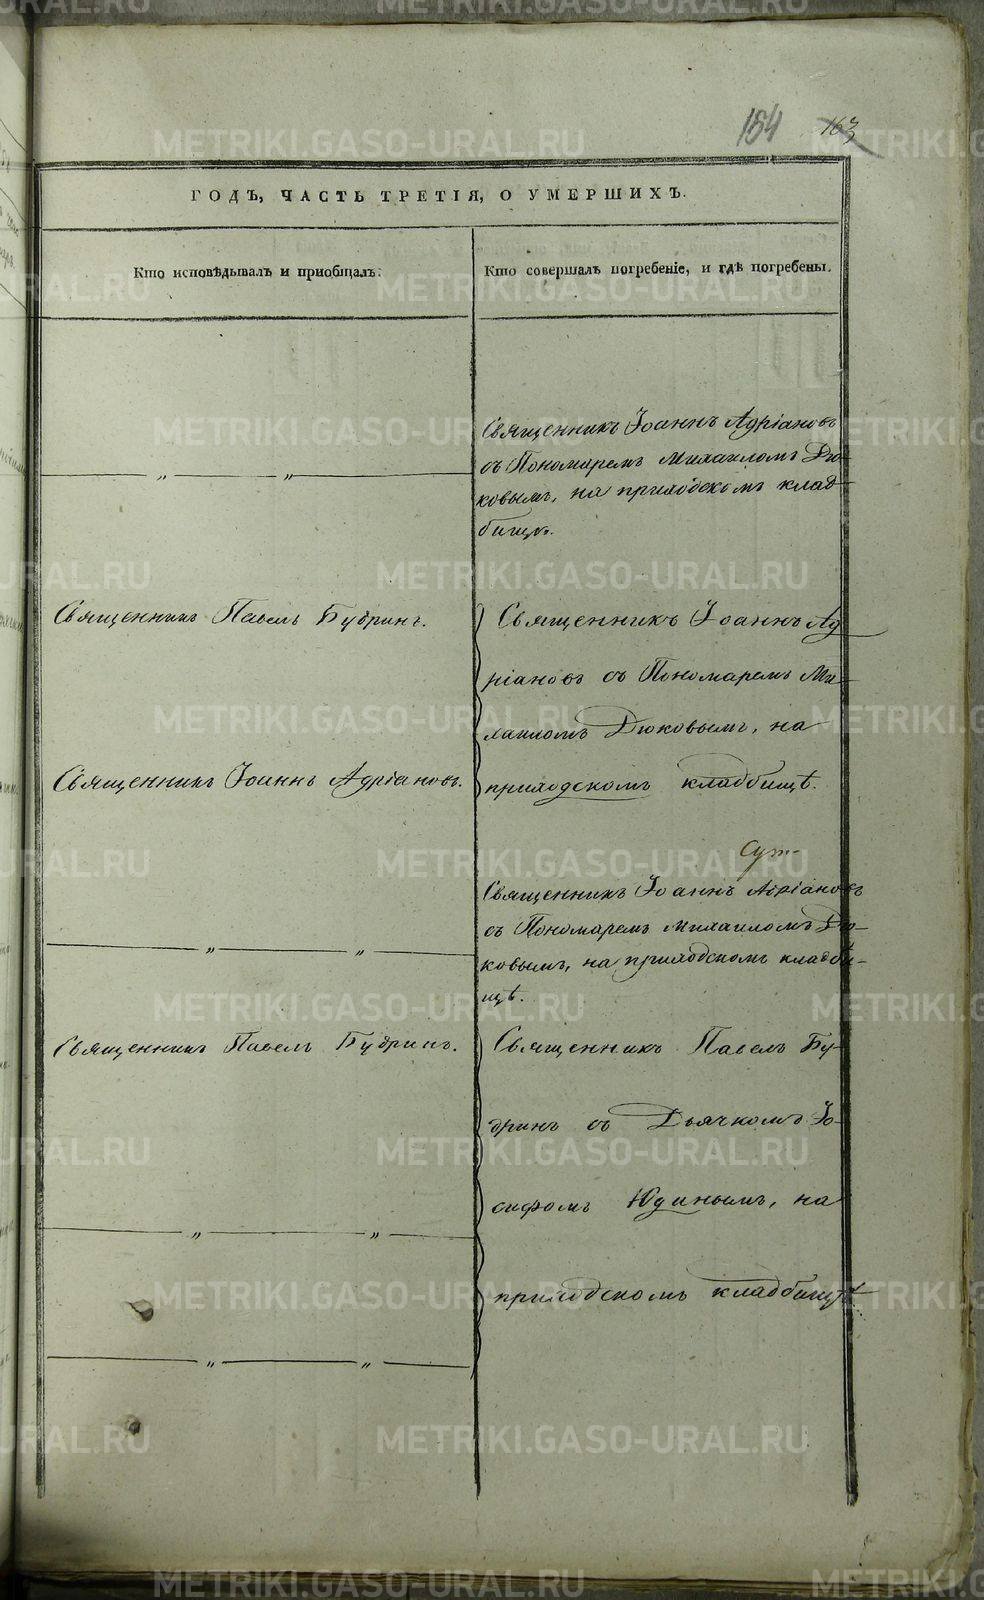 184 163
ГОДЪ, ЧАСТЬ ТРЕТІЯ, О УМЕРШИХЪ.
Кто исповѣдывалъ и пріобщалъ.
Кто совершалъ погребеніе, и гдѣ погребены.
Священникъ Іоаннъ Адріановъ
съ Пономаремъ Михаиломъ Дю-
ковымъ, на приходскомъ клад-
бищѣ.
„ „
Священникъ Павелъ Будринъ.
Священникъ Іоаннъ Ад-
ріановъ съ Пономаремъ Ми-
хаиломъ Дюковымъ, на
приходскомъ кладбищѣ.
Священникъ Іоаннъ Адріановъ.
Священникъ Іоаннъ Адріановъ
съ Пономаремъ Михаиломъ Дю-
ковымъ, на приходскомъ кладби-
щѣ.
„ „
Священникъ Павелъ Будринъ.
Священникъ Павелъ Бу-
дринъ съ Дьячкомъ Іо-
сифомъ Юдинымъ, на
приходскомъ кладбищѣ.
„ „
„ „
METRIKI.GASO-URAL.RU